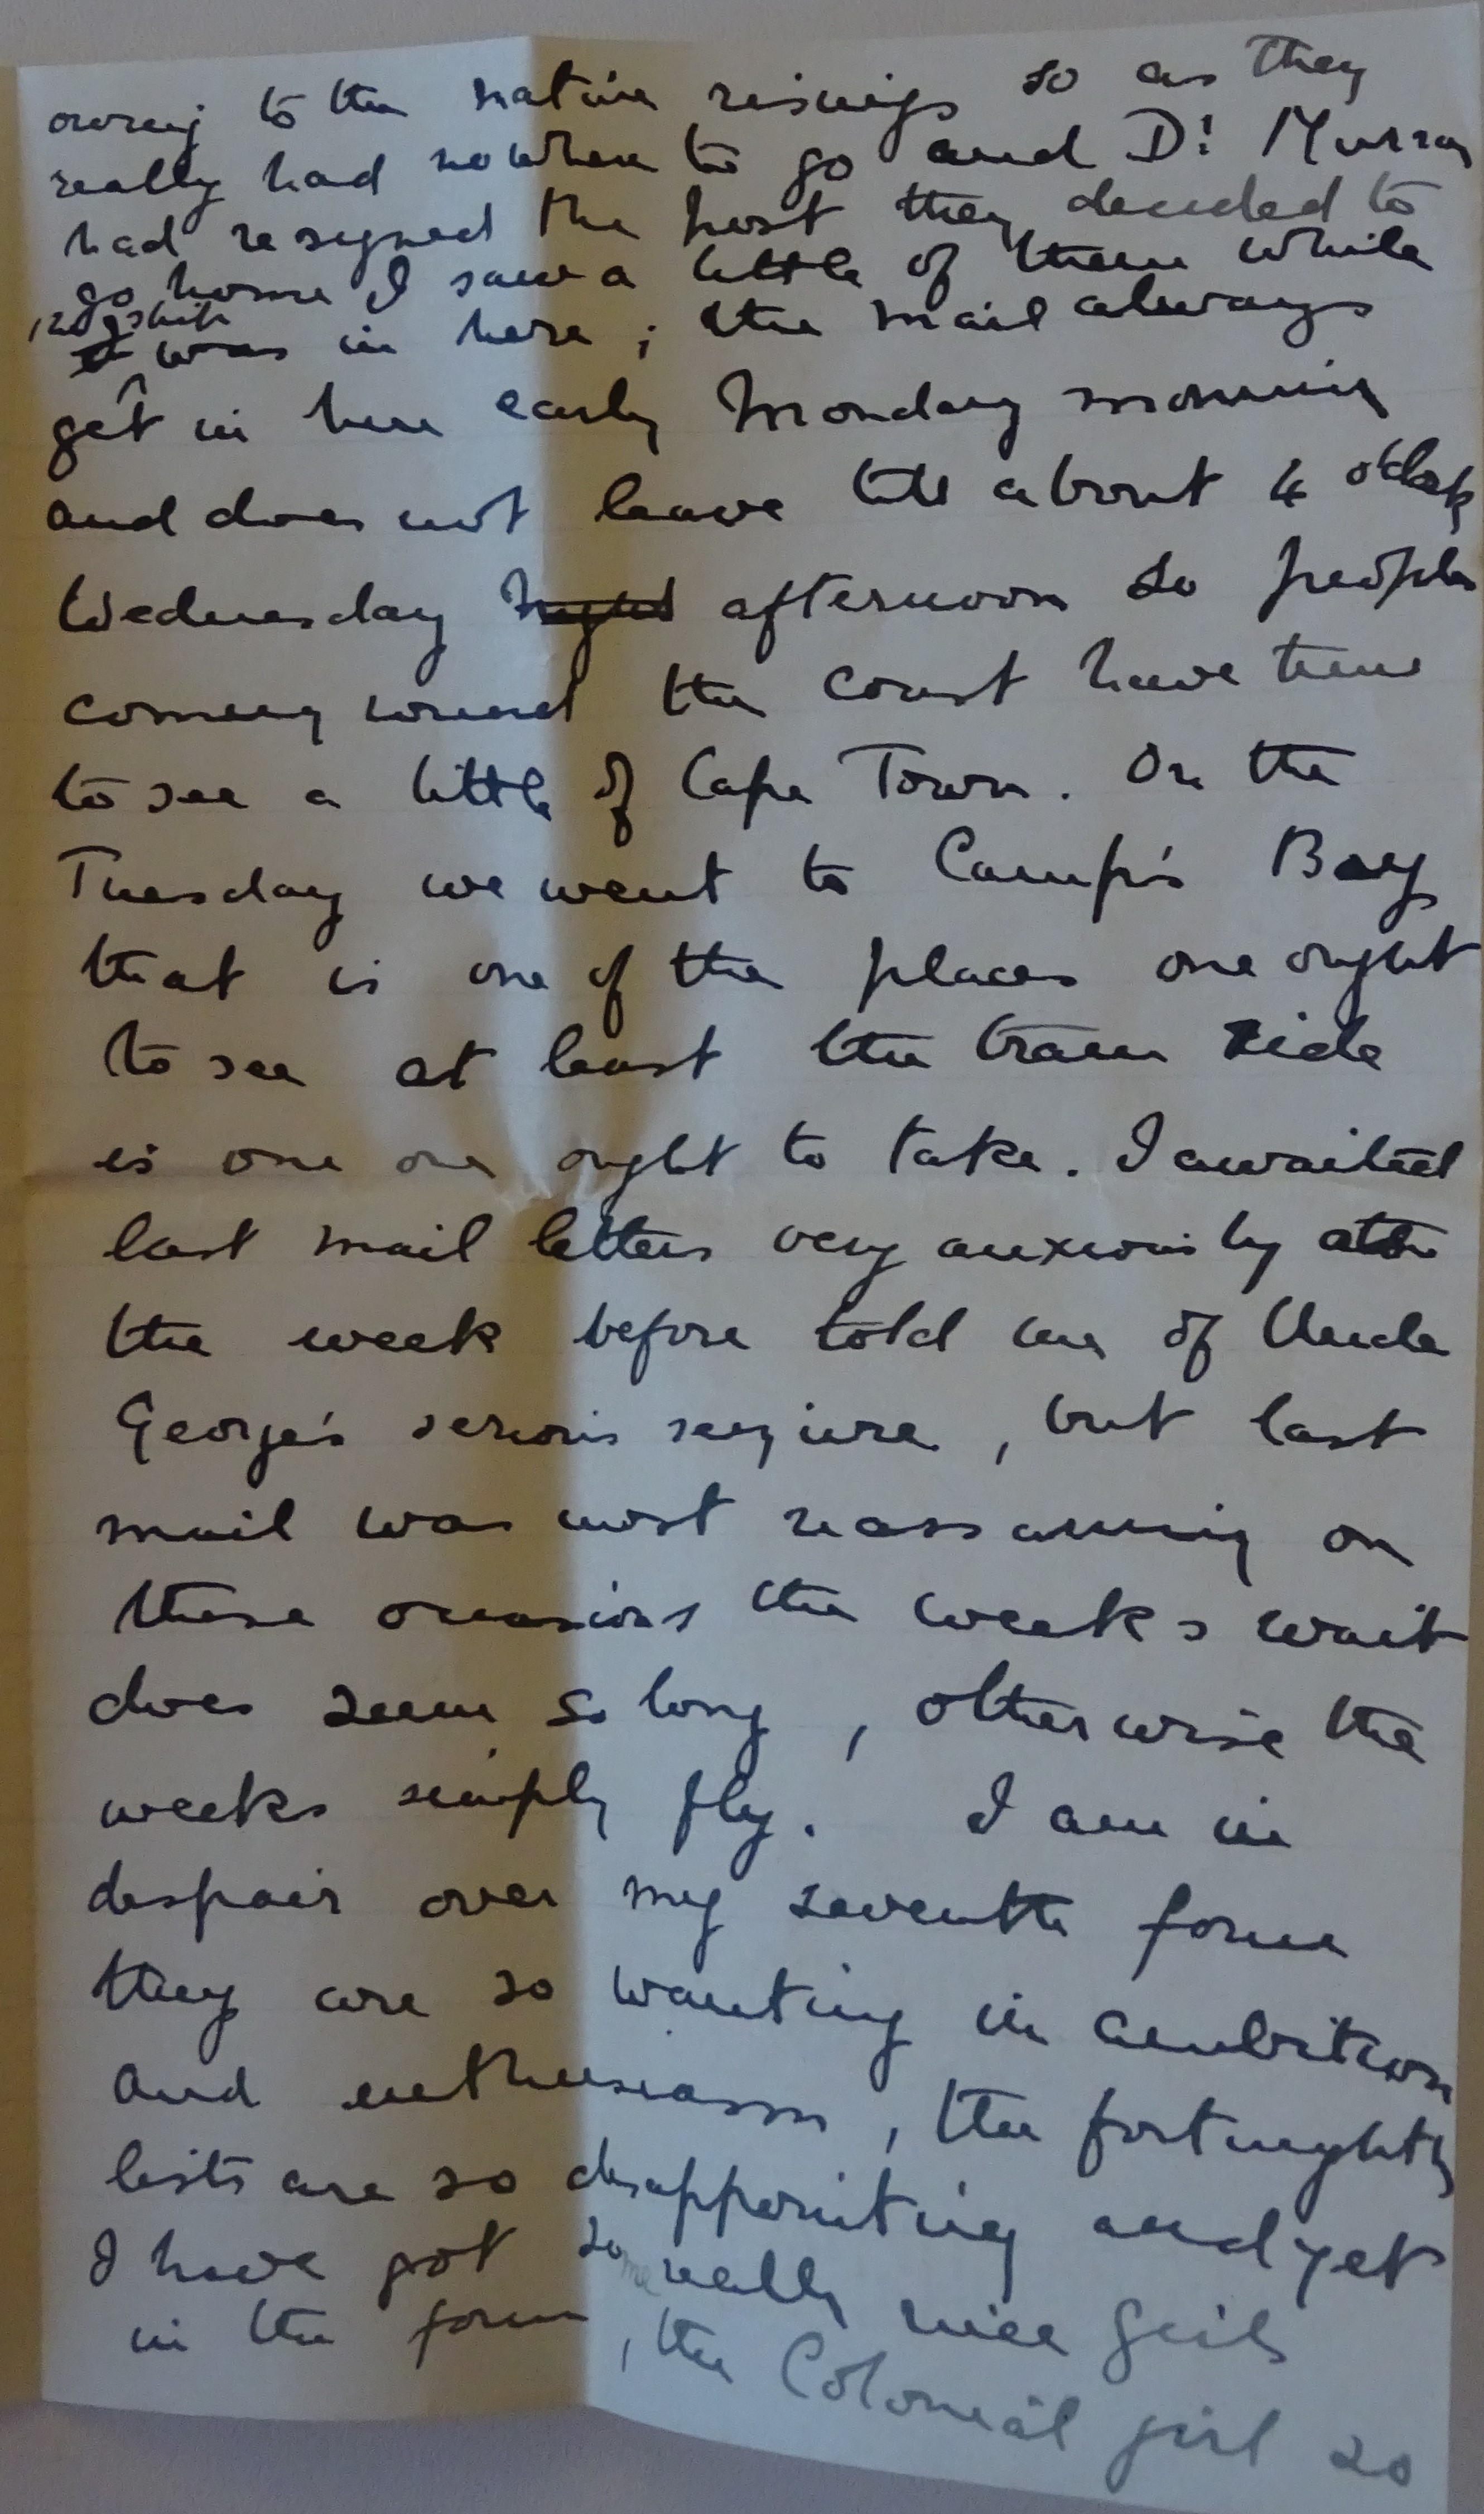 owing to the native risings so as they
really had nowhere to go and Dr Murray
had resigned the post they decided to
go home I saw a little of them while
ship
was in here ; the mail always
get in here early Monday morning
and does not leave till about 4 o'clock
Wednesday night afternoon so people
coming round the coast have time
to see a little of Cape Town. On the
Tuesday we went to Camp's Bay
that is one of the places one ought
to see at least the tram ride
is one one ought to take. I awaited
last mail letters very anxiously as
the week before told me of Uncle
George's serious seizure, but last
mail was most reassuring on
these occasions the weeks wait
does seem so long, otherwise the
weeks simply fly. I am in
despair over my seventh form
they are so wanting in ambition
and enthusiasm, the fortnightly
lists are so disappointing and yet
I have got some really nice girls
in the form, the Colonial girl so